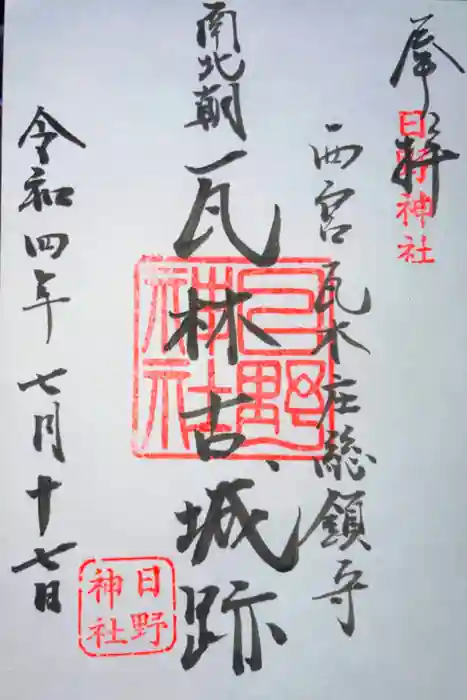 奉拝
日野神社
西宮 瓦木庄総鎮守
南北朝 瓦林古城跡
日野神社
令和四年七月十七日
日野神社